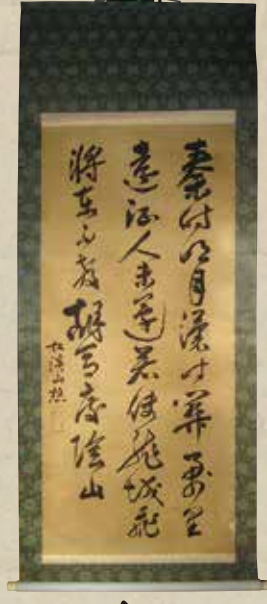 秦時明月漢時關萬里
遠征人未還若使龍城飛
將在不教胡馬度陰山